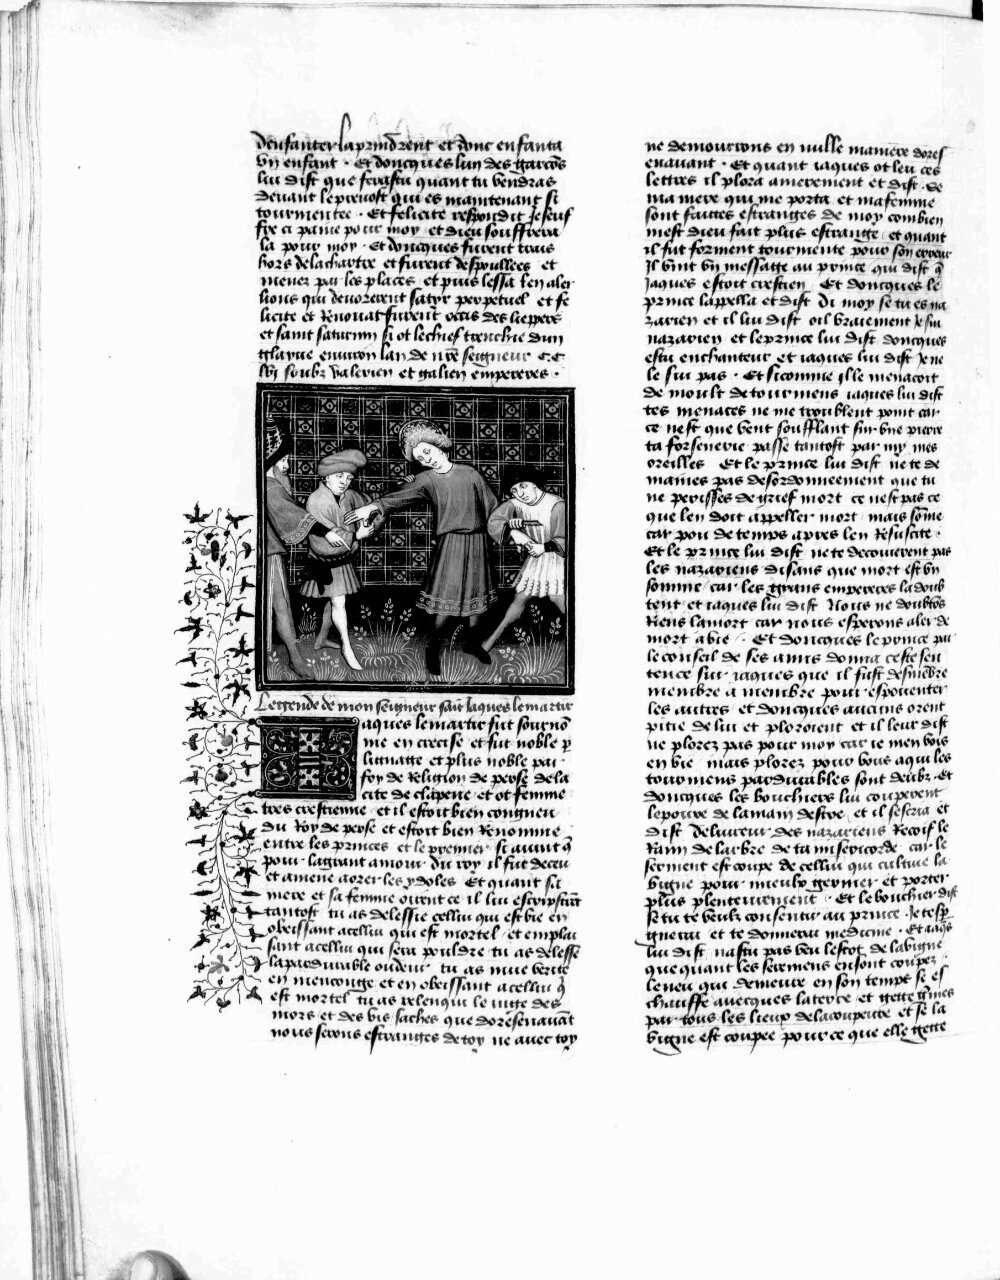 denfanter la prindrent et donc enfanta
vn enfant · Et doncques lun des garcõs
lui dist que feras tu quant tu vendras
deuant le preuost qui es maintenant si
tourmentee · Et felicite respondit Je seuf
fre ci paine pour moy · et dieu souffrera
la pour moy · Et doncques furent trais
hors de la chartre et furent despoullees et
menez par les places et puis lessa len aler
lions qui deuorerent satyr perpetuel et fe
licite et Renouat furent occis des liepars
et saint saturnin si ot le chief trenchie dun
glayue enuiron lan de nr̃e seigneur C.C.
lvj soubz valerien et galien empereres ·
Legende de mon seigneur saīt Jaques le martir
aques le martir fut sournõ
me en crecise et fut noble p
lignage et plus noble par
foy de Religion de perse de la
cite de elapene et ot femme
tres crestienne et il estoit bien congneu
du Roy de perse et estoit bien Renomme
entre les princes et le premier si auint q̃
pour la grant amour du roy il fut deceu
et amene aorer les ydoles Et quant sa
mere et sa femme oirent ce il lui escripsirẽt
tantost tu as delessie cellui qui est vie en
obeissant a cellui qui est mortel et emplai
sant a cellui qui sera pouldre tu as delesse
la pardurable oudeur tu as mue verite
en mencouge et en obeissant a cellui q̃
est mortel tu as relenqui le iuge des
mors et des vis saches que doresenauãt
nous serons estranges de toy ne auec toy
ne demourrons en nulle maniere dores
enauant · Et quant iaques ot leu ces
lettres il plora amerement et dist · Se
ma mere qui me porta et ma femme
sont faictes estranges de moy combien
mest dieu fait plus estrange et quant
il fut forment tourmente pour son erreur
Il vint vn message au prince qui dist q̃
Jaques estoit crestien Et doncques le
prince lappella et dist Di moy se tu es na
zarien et il lui dist oil vraiement Je sui
nazarien et le prince lui dist doncques
es tu enchanteur et iaques lui dist Je ne
le sui pas · Et si comme il le menacoit
de moult de tourmens iaques lui dist
tes menaces ne me troublent point car
ce nest que vent soufflant sur vne pierre
ta forsenerie passe tantost par my mes
oreilles Et le prince lui dist ne te de
maines pas desordonneement que tu
ne perisses de grief mort ce nest pas ce
que len doit appeller mort mais sõme
car pou de temps apres len Resuscite ·
Et le prince lui dist ne te decoiuerent pas
les nazariens disans que mort est vn
somme car les grans empereres la doub
tent et iaques lui dist Nous ne doubtõs
Riens la mort car nous esperons aler de
mort a vie · Et doncques le prince par
le conseil de ses amis donna ceste sen
tence sur iaques que il fust desmẽbre
membre a membre pour espouenter
les autres et doncques aucuns orent
pitie de lui et ploroient et il leur dist
ne plorez pas pour moy car ie men vois
en vie mais plorez pour vous a qui les
tourmens pardurables sont deubz · Et
doncques les bouchiers lui couperent
le pouce de la main destre et il sescria et
dist Deliureur des nazariens Recoif le
Raim de larbre de ta misericorde car le
serment est coupe de cellui qui cultiue la
vigne pour mieulx germer et porter
plus plenteiuement · Et le bouchier dist
se tu te veulx consentir au prince · Je tesp
gnerai et te donnerai medicine · Et iaqs
lui dist nas tu pas veu lestoc de la vigne
que quant les sermens en sont coupez ·
le neu qui demeure en son temps se es
chauffe auecques la terre et gette germes
par tous les lieux de la coupeure et se la
vigne est coupee pour ce que elle gette